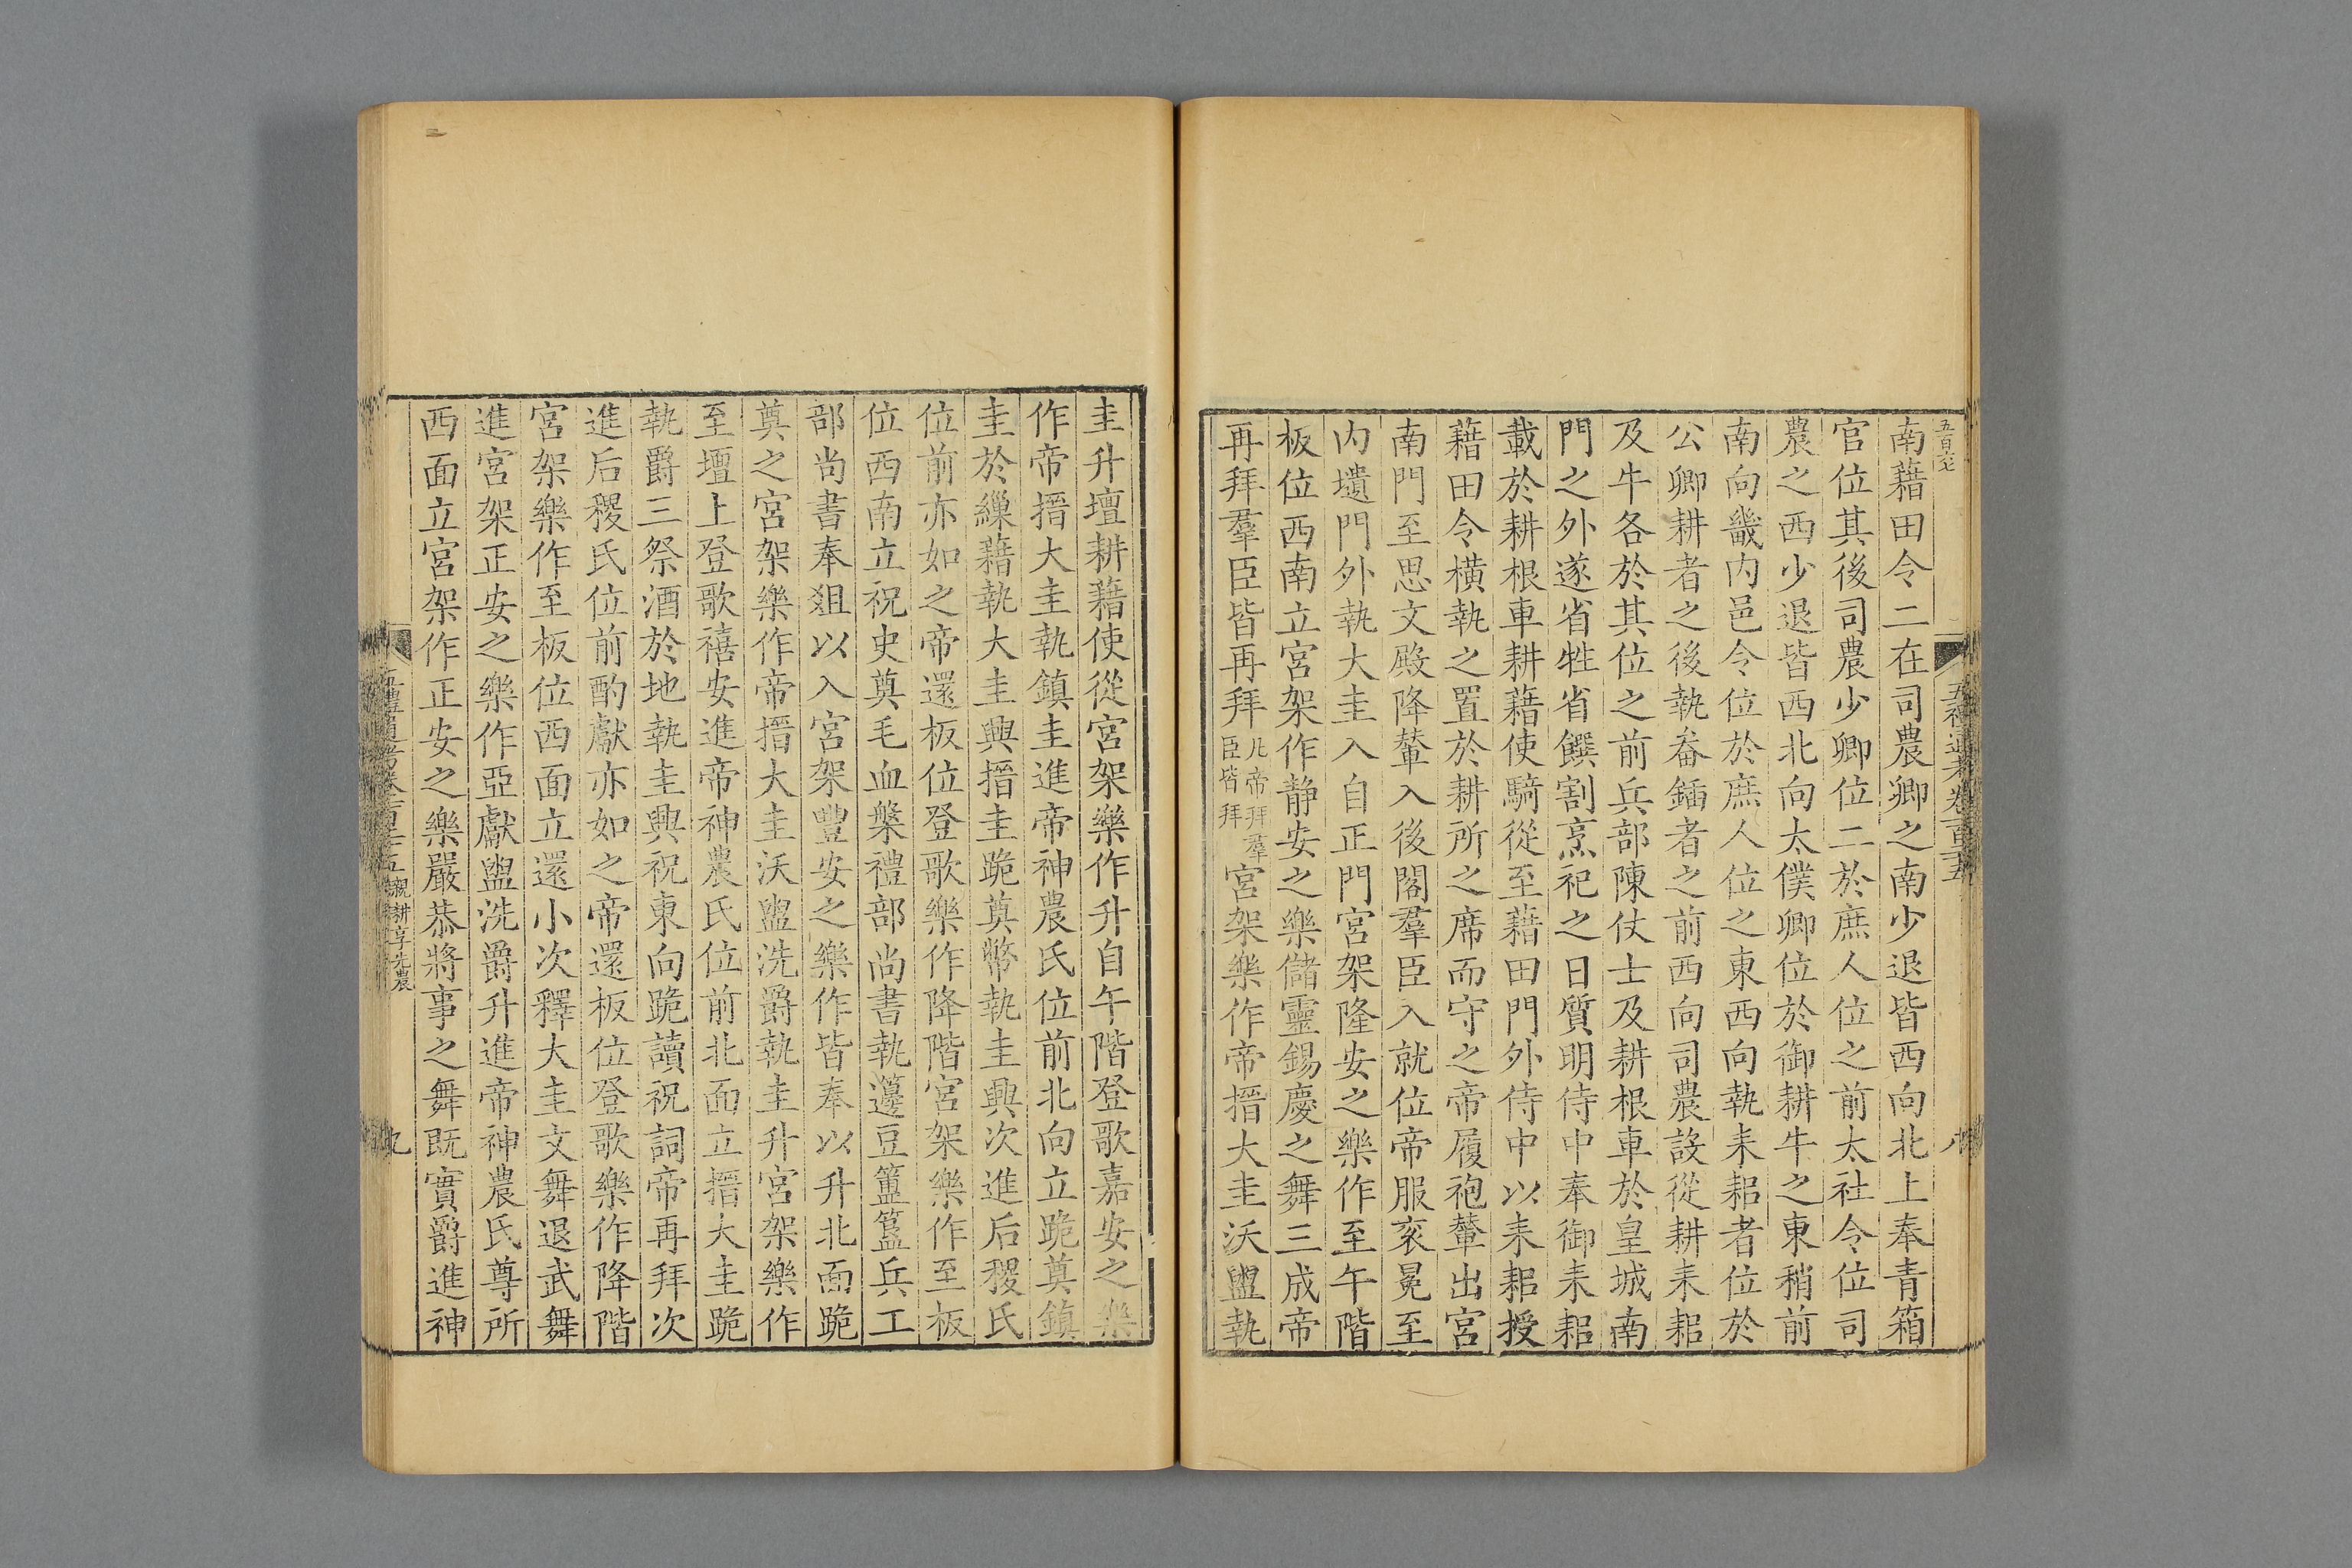 南藉田令二在司農卿之南少退皆西向北上奉青箱
官位其後司農少卿位二於庶人位之前太社令位司
農之西少退皆西北向太僕卿位於御耕牛之東稍前
南向畿内邑令位於庶人位之東西向執耒耜者位於
公卿耕者之後執畚鍤者之前西向司農設從耕耒耜
及牛各於其位之前兵部陳仗士及耕根車於皇城南
門之外遂省牲省饌割烹祀之日質明侍中奉御耒耜
載於耕根車耕藉使騎從至藉田門外侍中以耒耜授
藉田令橫執之置於耕所之席而守之帝履袍輦出宮
南門至思文殿降輦入後閣羣臣入就位帝服衮冕至
内壝門外執大圭入自正門宮架隆安之樂作至午階
板位西南立宮架作静安之樂儲靈錫慶之舞三成帝
再拜羣臣皆再拜凡帝拜羣臣皆拜宮架樂作帝搢大圭沃盥執
圭升壇耕藉使從宮架樂作升自午階登歌嘉安之樂
作帝搢大圭執鎮圭進帝神農氏位前北向立跪奠鎮
圭於繅藉執大圭興搢圭跪奠幣執圭興次進后稷氏
位前亦如之帝還板位登歌樂作降階宮架樂作至板
位西南立祝史奠毛血槃禮部尚書執籩豆簠簋兵工
部尚書奉爼以入宮架豐安之樂作皆奉以升北面跪
奠之宮架樂作帝搢大圭沃盥洗爵執圭升宮架樂作
至壇上登歌禧安進帝神農氏位前北面立搢大圭跪
執爵三祭酒於地執圭興祝東向跪讀祝詞帝再拜次
進后稷氏位前酌獻亦如之帝還板位登歌樂作降階
宮架樂作至板位西面立還小次釋大圭文舞退武舞
進宮架正安之樂作亞獻盥洗爵升進帝神農氏尊所
西面立宮架作正安之樂嚴恭將事之舞既實爵進神